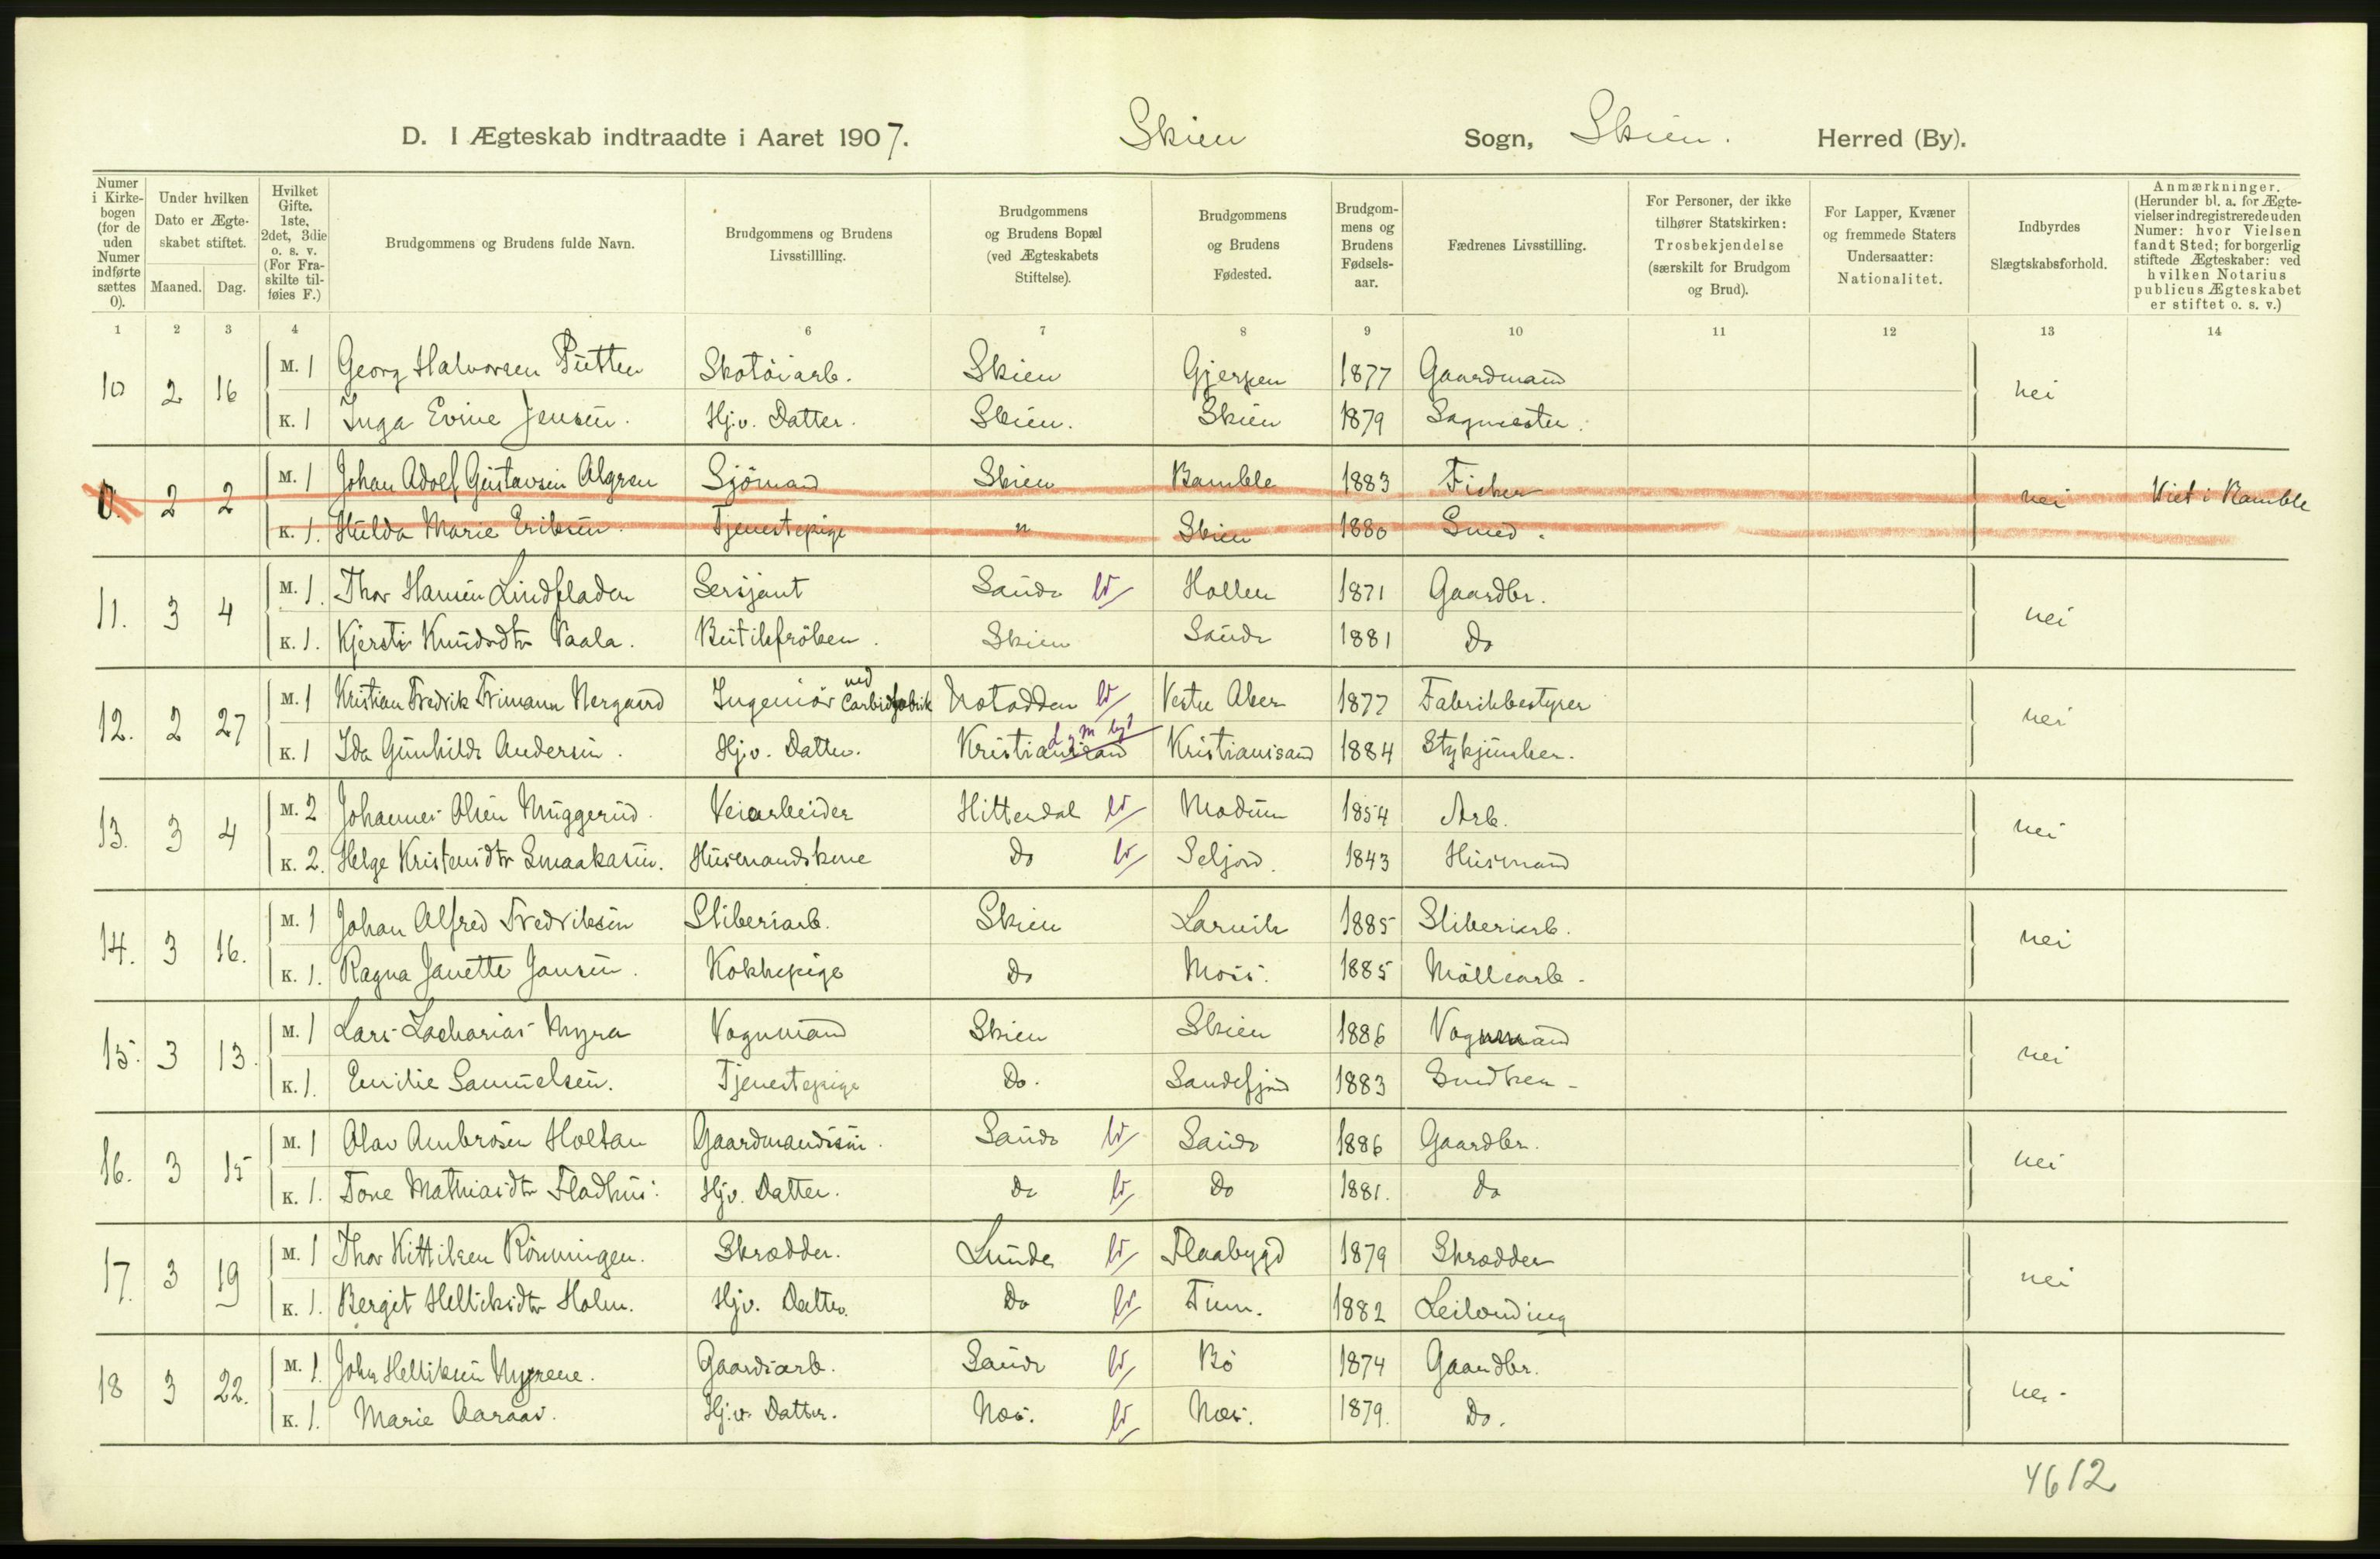 D. I Ægteskab indtraadte i Aaret 1907. Skien Sogn, Skien. Herred (By).
Numer i Kirkebogen (for de uden Numer indførte sættes 0).
Under hvilken Dato er Ægteskabet stiftet.
Maaned. Dag.
Hvilket Gifte. 1ste, 2det, 3die o. s. v. (For Fraskilte tilføies F.)
Brudgommens og Brudens fulde Navn.
Brudgommens og Brudens Livsstillling.
Brudgommens og Brudens Bopæl (ved Ægteskabets Stiftelse).
Brudgommens og Brudens Fødested.
Brudgommens og Brudens Fødselsaar.
Fædrenes Livsstilling.
For Personer, der ikke tilhører Statskirken: Trosbekjendelse (særskilt for Brudgom og Brud).
For Lapper, Kvæner og fremmede Staters Undersaatter: Nationalitet.
Indbyrdes Slægtskabsforhold.
Anmærkninger. (Herunder bl. a. for Ægtevielser indregistrerede uden Numer: hvor Vielsen fandt Sted; for borgerlig stiftede Ægteskaber: ved hvilken Notarius publicus Ægteskabet er stiftet o. s. v.)
1 2 3 4 6 7 8 9 10 11 12 13 14
10 2 16 M. 1 Georg Halvorsen Putten Skotöiarb. Skien Gjerpen 1877 Gaardmand nei
K. 1 Inga Evine Jensen. Hj.v. Datter. Skien. Skien 1879 Sagmester.
0. 2 2 M. 1 Johan Adolf Gustavsen Algren Sjömand Skien Bamble 1883 Fisker nei Viet i Bamble
K. 1. Hulda Marie Eriksen. Tjenestepige " Skien 1880 Smed.
11. 3 4 M. 1. Thor Hansen Lindfladen Sersjant Saude Hollen 1871 Gaardbr. nei
K. 1. Kjersti Knudsdtr Vaala. Butikfröken. Skien Saude 1881 Do
12. 2 27 M. 1 Kristian Fredrik Frimann Nergaard Ingeniör ved Carbidfabrik Notodden Vestre Aker 1877 Fabrikbestyrer nei
K. 1 Ida Gunhilde Andersen. Hj.v. Datter. Kristiansand Kristiansand 1884 Stykjunker.
13. 3 4 M. 2 Johannes Olsen Muggerud. Veiarbeider Hitterdal Modum 1854 Arb. nei
K. 2. Helge Kristensdtr Smaakasin. Husmandskone Do Seljord. 1843 Husmand
14. 3 16. M. 1 Johan Alfred Fredriksen Sliberiarb. Skien Larvik 1885 Sliberiarb. nei
K. 1. Ragna Janette Jansen. Kokkepige Do Moss. 1885 Möllearb.
15. 3 13. M. 1 Lars Zacharias Myra Vognmand Skien Skien 1886 Vognmand nei
K. 1. Emilie Samuelsen. Tjenestepige Do. Sandefjord 1883 Snedker
16. 3 15 M. 1 Olav Ambrosen Holtan Gaardmandssön. Saude Saude 1886 Gaardbr. nei
K. 1. Tone Mathiasdtr Fladhus. Hjv. Datter. Do Do 1881. Do
17. 3 19 M. 1 Thor Kittilsen Rönningen. Skrædder. Lunde Flaabygd 1879 Skrædder nei
K. 1. Bergit Helliksdtr Holm. Hjv. Datter. Do Tinn. 1882 Leilending
18 3 22. M. 1. John Helliksen Nyrene. Gaardsarb. Saude Bö 1874 Gaardbr. nei
K. 1. Marie Aaraas. Hj.v. Datter. Næs. Næs. 1879. Do.
4612